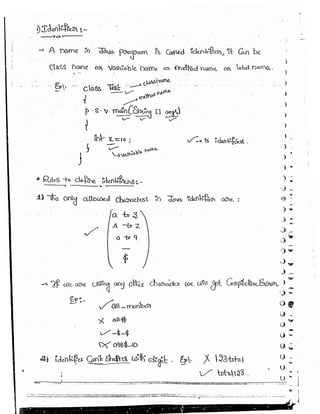 1) Identifiers :-
→ A name in Java program is called identifier, it can be
class name or variable name or method name or label name.
Ex:- class Test → classname
{ → method name
p. s. v. main(String [] args)
{
int x = 10;
} → variable name
}
✓ → is identifiers.
* Rules to define identifiers :-
1) The only allowed characters in Java identifiers are :
a to z
A to Z
0 to 9
_
$
→ If we are using any other characters we will get CompiletimeError.
Ex:- ✓ all_members
✗ all#
✓ _$_$
2) identifiers can't started with digit. Ex:- ✗ 123total
✓ total123.